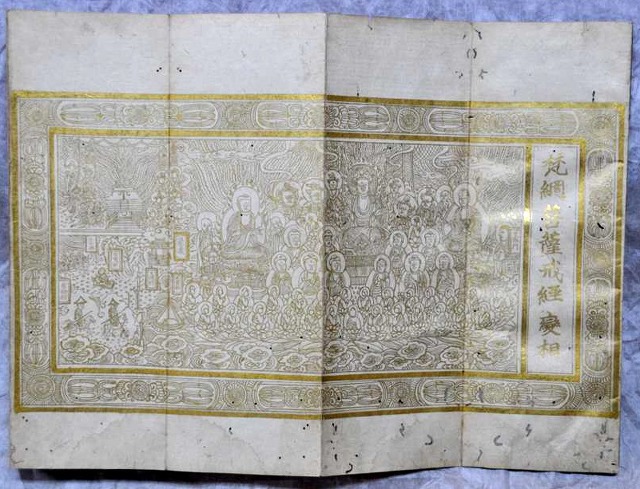 梵網菩薩戒經變相